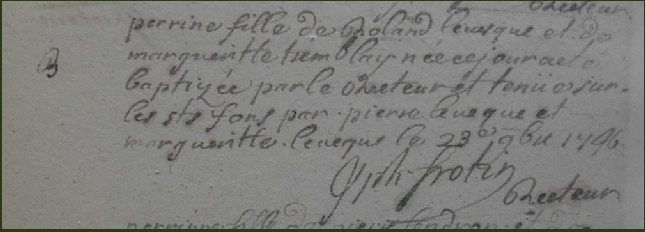 Recteur
B
perrine fille de Roland levesque et de
margueritte tremblay née ce jour a été
baptizée par le Recteur et tenüe sur
les sts fons par pierre leveque et
margueritte leveque le 23e 9bre 1746
Jph frotin
Recteur
perrinne fille de pierre gendron et de